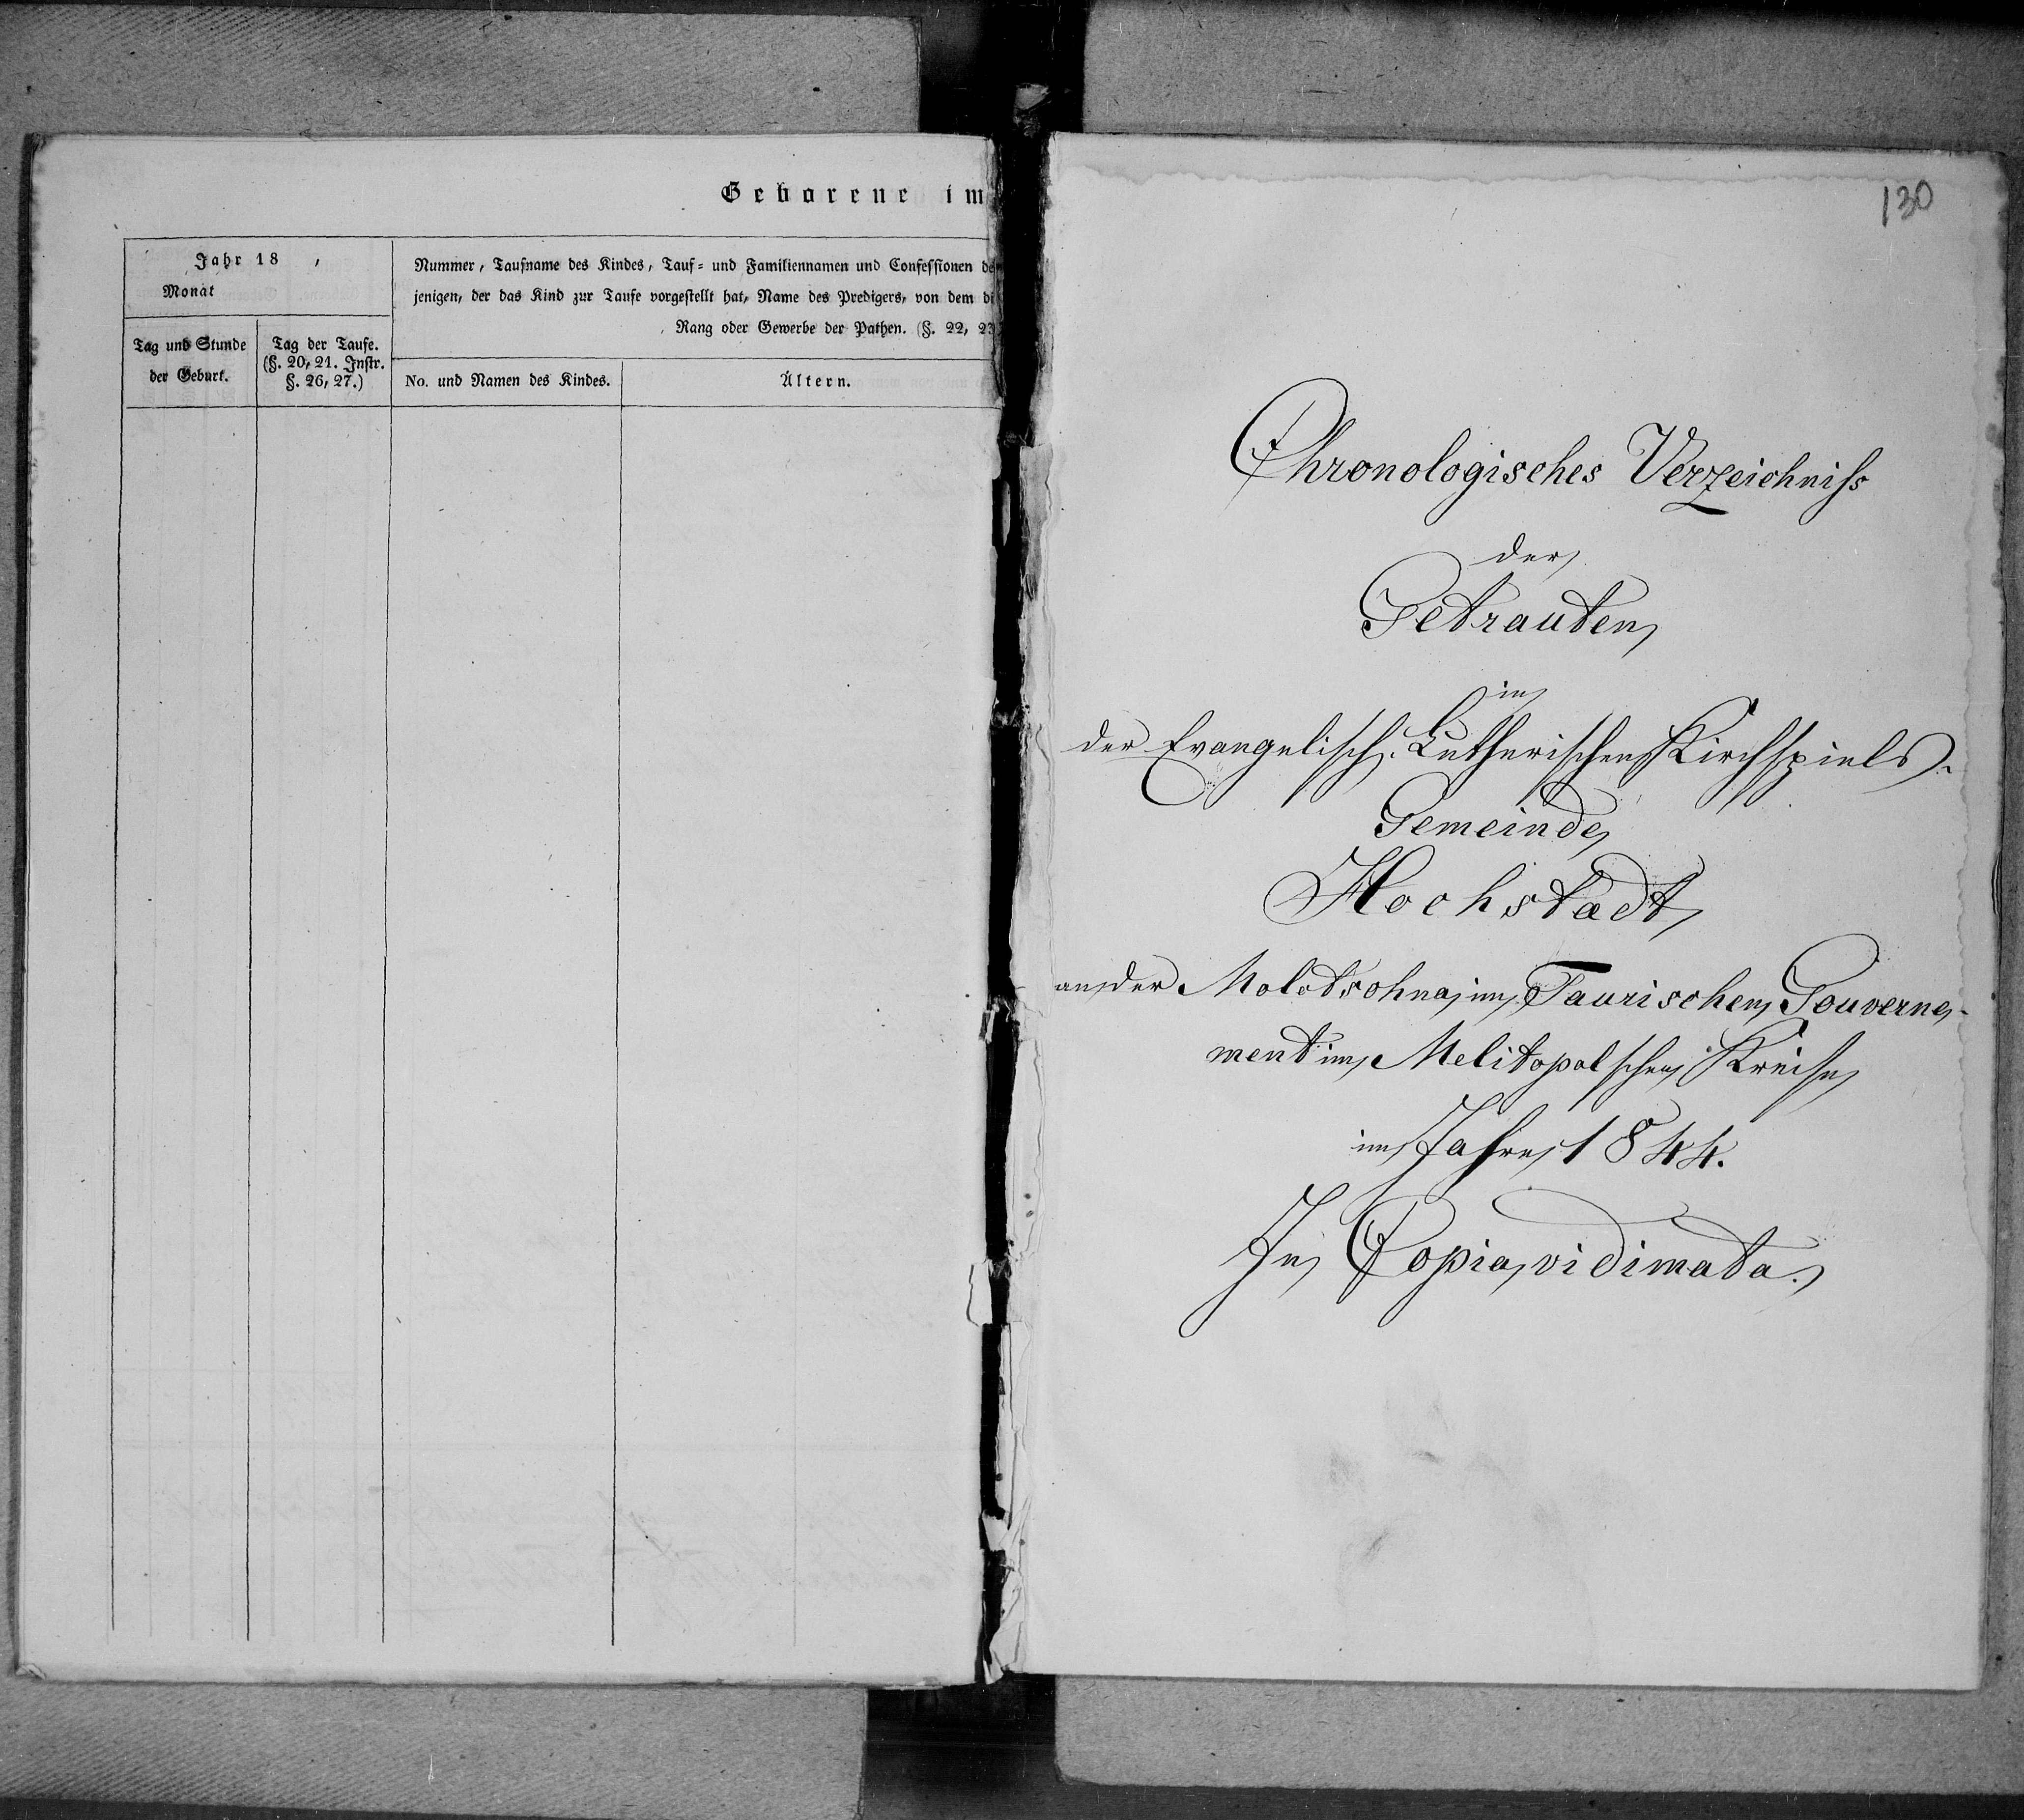 Geborene im
Jahr 18 ,
Monat
Nummer, Taufname des Kindes, Tauf- und Familiennamen und Confessionen de
jenigen, der das Kind zur Taufe vorgestellt hat, Name des Predigers, von dem di
Rang oder Gewerbe der Pathen. (§. 22, 23
Tag und Stunde
der Geburt.
Tag der Taufe.
(§. 20, 21. Instr.
§. 26, 27.)
No. und Namen des Kindes.
Ältern.
130
Chronologisches Verzeichniſs
der
Getrauten
in
der Evangelisch-Lutherischen Kirchspiels-
Gemeinde
Hochstädt
an der Molotschna, im Taurischen Gouverne-
ment im Melitopolschen Kreise
im Jahre 1844.
In Copia vidimata.